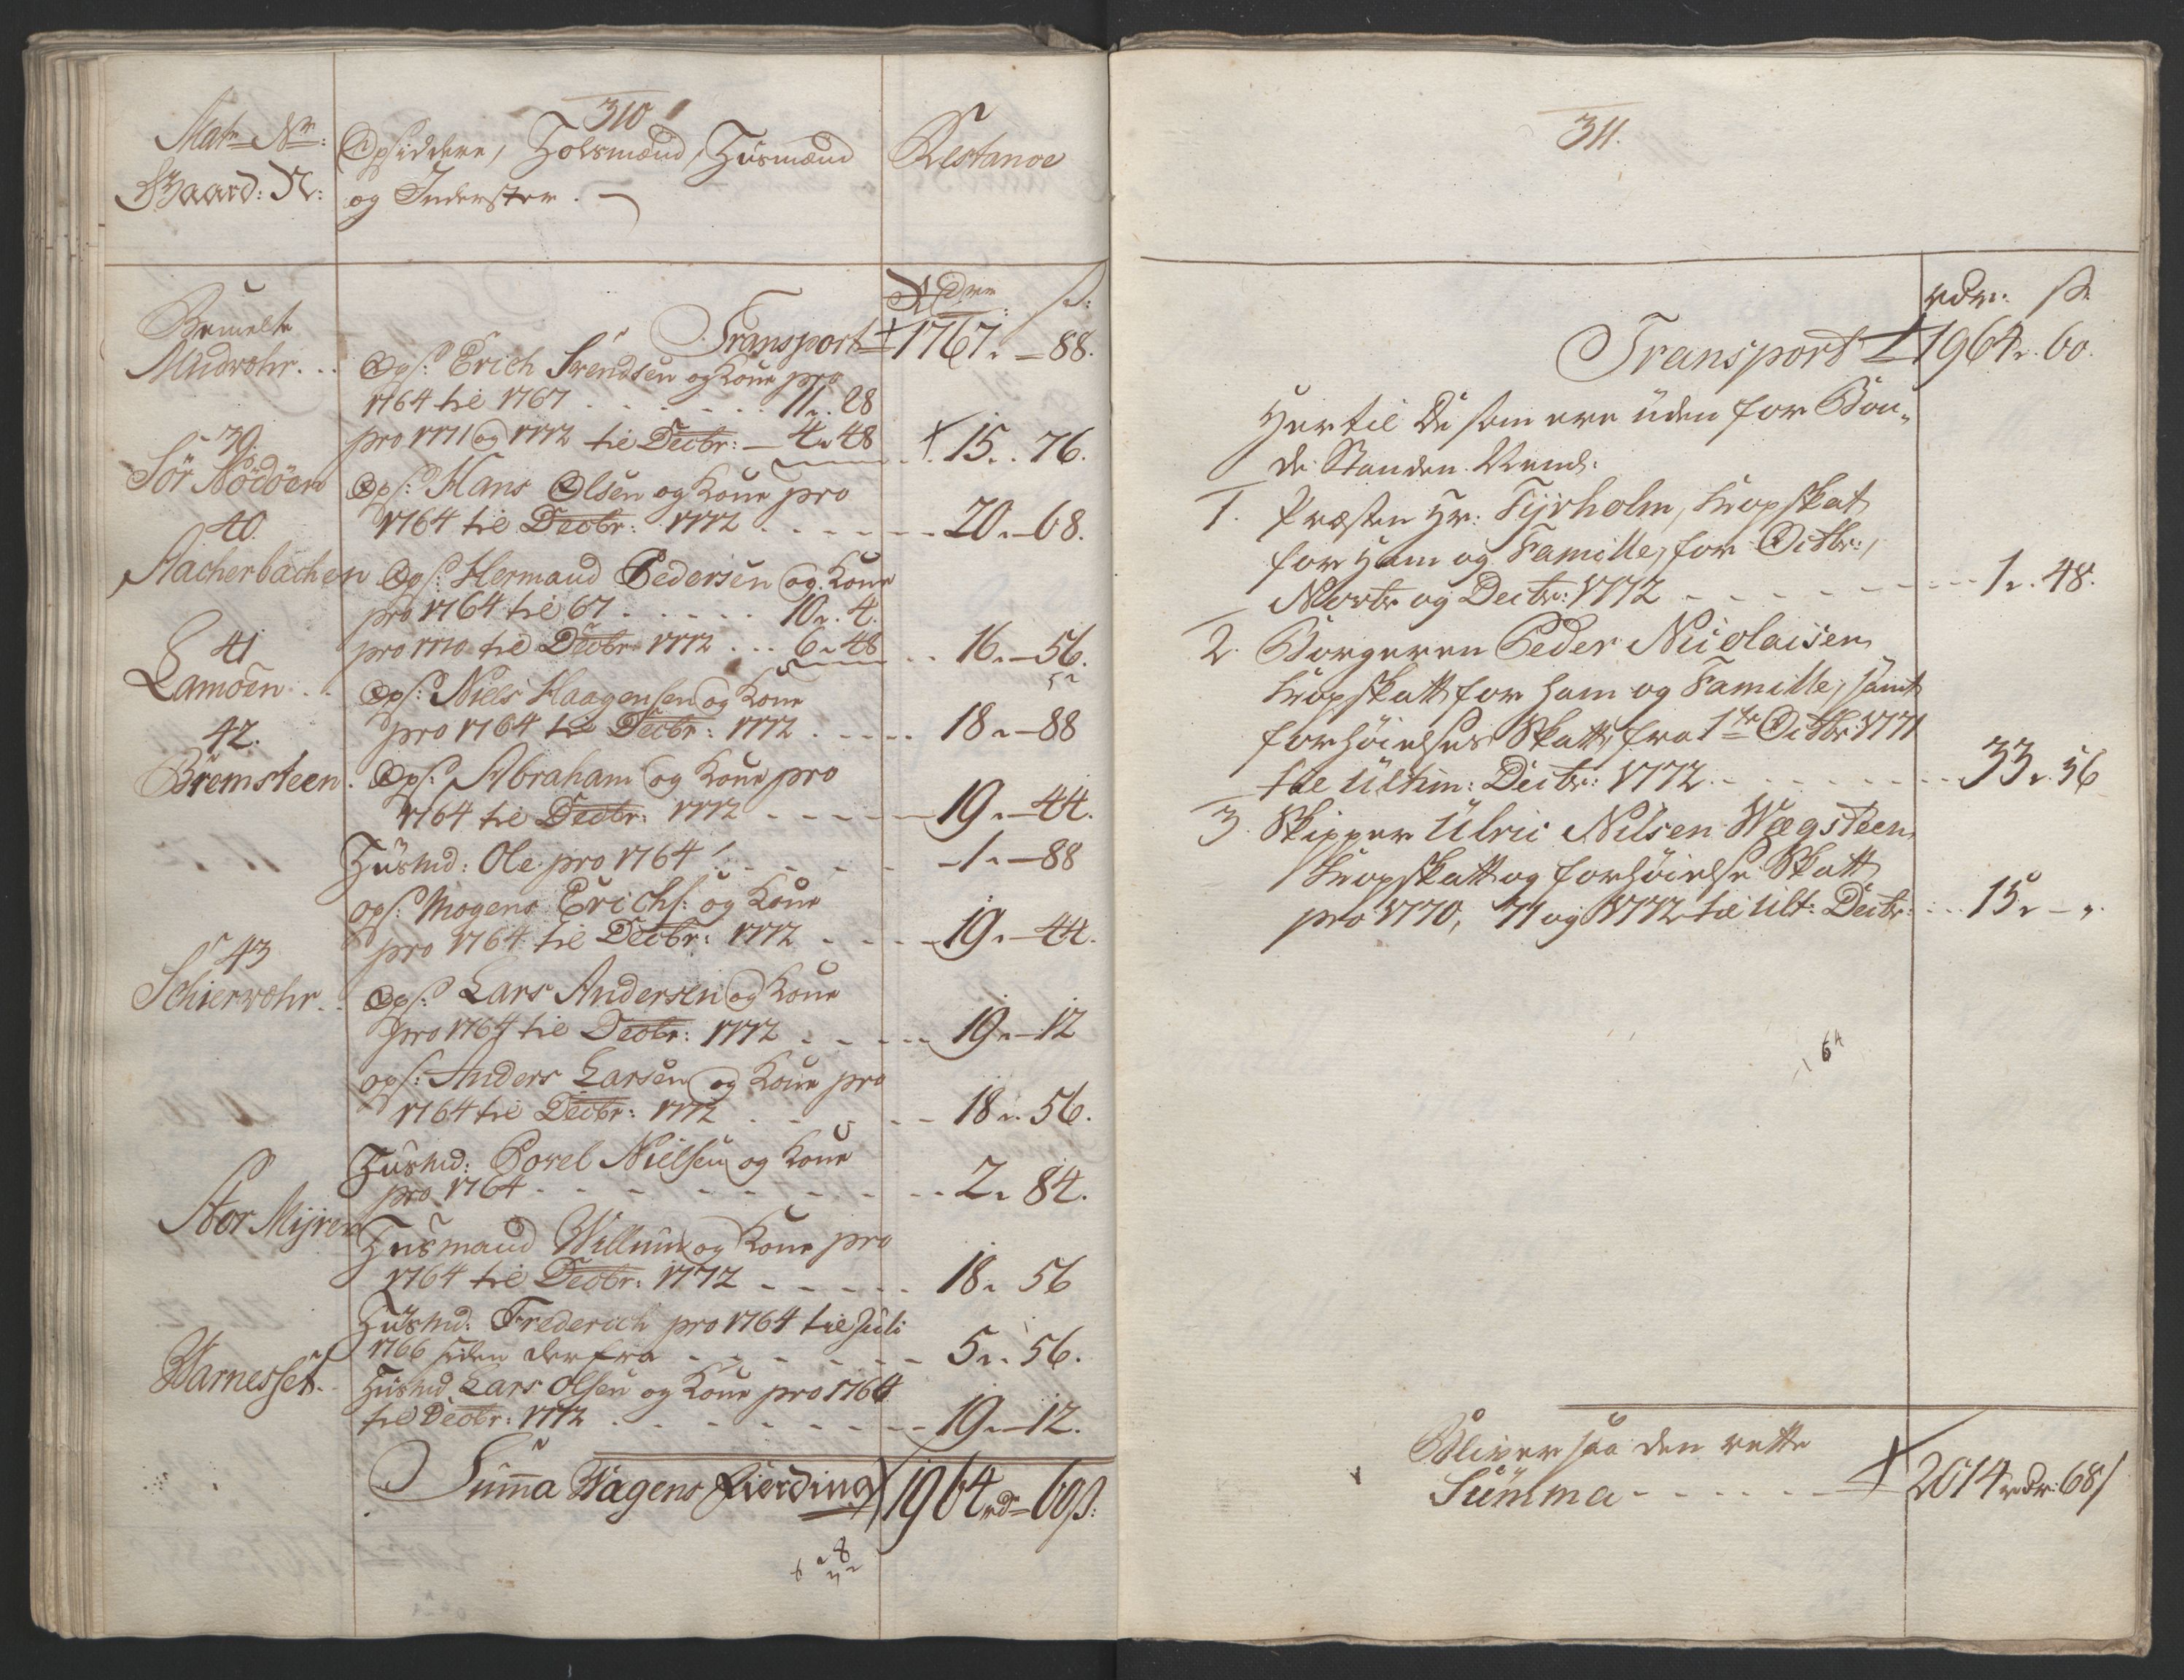 310
Matr: Nr:
Gaard: N:
Opsiddere, Holsmænd, Huusmænd
og Inderster.
Restance
Rdr ß:
Transport 1767 „ 88.
Bemelte
Midvohr...
Ops: Erich Svendsen og Kone pro
1764 til 1767 . . . . . . 11 „ 28
pro 1771 og 1772 til Decbr: — 4 „ 48 .. 15 „ 76.
39.
Sör Nödöen
Ops: Hans Olsen og Kone pro
1764 til Decbr: 1772 . . . . . 20 „ 68.
40.
Aacherbachen
Ops: Hermand Pedersen og Kone
pro 1764 til 67 . . . . . 10 „ 4.
pro 1770 til Decbr: 1772 . . . 6 „ 48 .. 16 „ 56.
41
Lamoen ..
Ops: Niels Haagensen og Kone
pro 1764 til Decbr: 1772 . . . . . 18 „ 88
42.
Bremsteen.
Ops: Abraham og Kone pro
1764 til Decbr: 1772 . . . . . 19 „ 44.
Huusmd: Ole pro 1764 . . . . . 1 „ 88
ops: Mogens Erichs: og Kone
pro 1764 til Decbr: 1772 . . . . 19 „ 44.
43
Schiervohr..
Ops: Lars Andersen og Kone
pro 1764 til Decbr: 1772 . . . . . 19 „ 12
ops: Anders Larsen og Kone pro
1764 til Decbr: 1772 . . . . . 18 „ 56.
Huusmd: Povel Nielsen og Kone
pro 1764 . . . . . . . . . 2 „ 84.
Stor Mijren
Huusmand Willum og Kone pro
1764 til Decbr: 1772 . . . . . 18 „ 56
Huusmd: Frederich pro 1764 til Juli
1766 siden derfra . . . . . . 5 „ 56.
Warnesset.
Huusmd Lars Olsen og Kone pro 1764
til Decbr: 1772 . . . . . . . . 19 „ 12.
Summa Wagens Fierding 1964 rd 60 ß:
311.
rdr: ß
Transport 1964 „ 60.
Hertil De som ere uden for Bon-
de Standen. Neml:
1. Præsten Hr: Fyrholm, Kopskat
for Ham og Famille, for Octbr:,
Novbr og Decbr: 1772 - - - - - - - 1 „ 48.
2. Borgeren Peder Nicolaisen
Kopskatt for ham og Famille, samt
forhøielses Skatt, fra 1te Octbr: 1771
til Ultim: Decbr: 1772 - - - - - - 33 „ 56
3. Skipper Ulric Nilsen Wegsteen
Kopskatt og forhøielse Skatt
pro 1770, 71 og 1772 til Ult: Decbr: ... 15 „ - „
64
Bliver saa den rette
Summa - - - - - - 2014 rdr: 68 ß